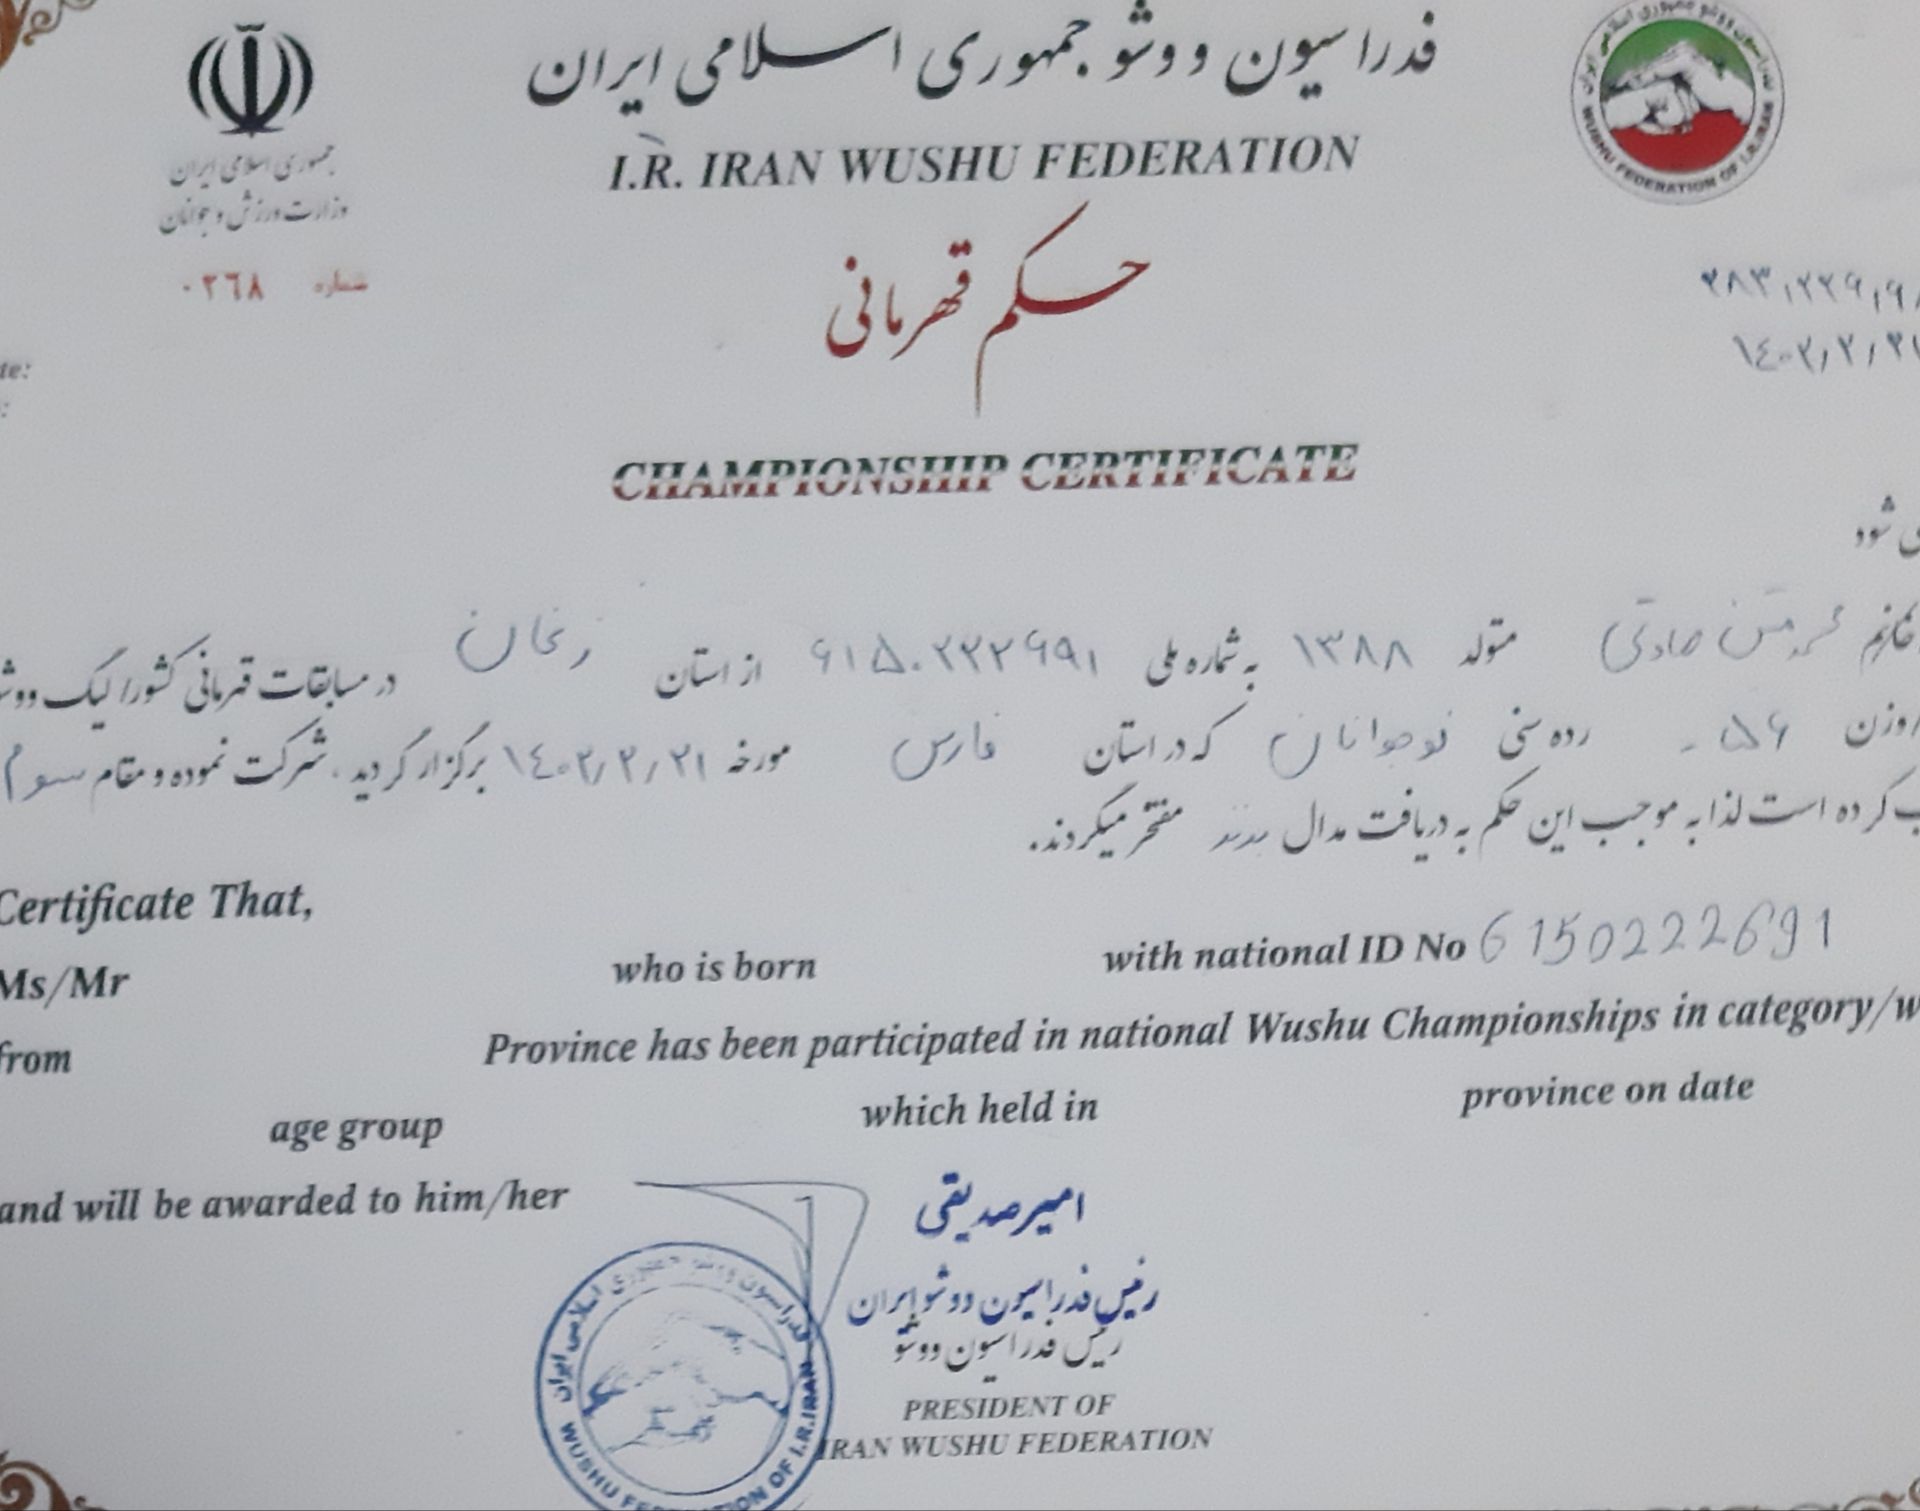 فدراسیون ووشو جمهوری اسلامی ایران
I.R. IRAN WUSHU FEDERATION
جمهوری اسلامی ایران
وزارت ورزش و جوانان
شماره ۰۲٦۸
فدراسیون ووشو جمهوری اسلامی ایران
WUSHU FEDERATION OF I.R.IRAN
حکم قهرمانی
۱٤۰۲/۲/۲
CHAMPIONSHIP CERTIFICATE
شود
صادقی متولد ۱۳۸۸ به شماره ملی ۶۱۵۰۲۲۲۶۹۱ از استان زنجان در مسابقات قهرمانی کشور / لیگ ووشو
وزن ۵۶- رده سنی نوجوانان که در استان فارس مورخه ۱٤۰۲/۲/۲۱ برگزار گردید، شرکت نموده و مقام سوم
کرده است لذا به موجب این حکم به دریافت مدال برنز مفتخر میگردند.
Certificate That,
Ms/Mr who is born with national ID No 6150222691
from Province has been participated in national Wushu Championships in category/w
age group which held in province on date
and will be awarded to him/her
امیر صدیقی
رئیس فدراسیون ووشو ایران
رئیس فدراسیون ووشو
PRESIDENT OF
IRAN WUSHU FEDERATION
فدراسیون ووشو جمهوری اسلامی ایران
WUSHU FEDERATION OF I.R.IRAN